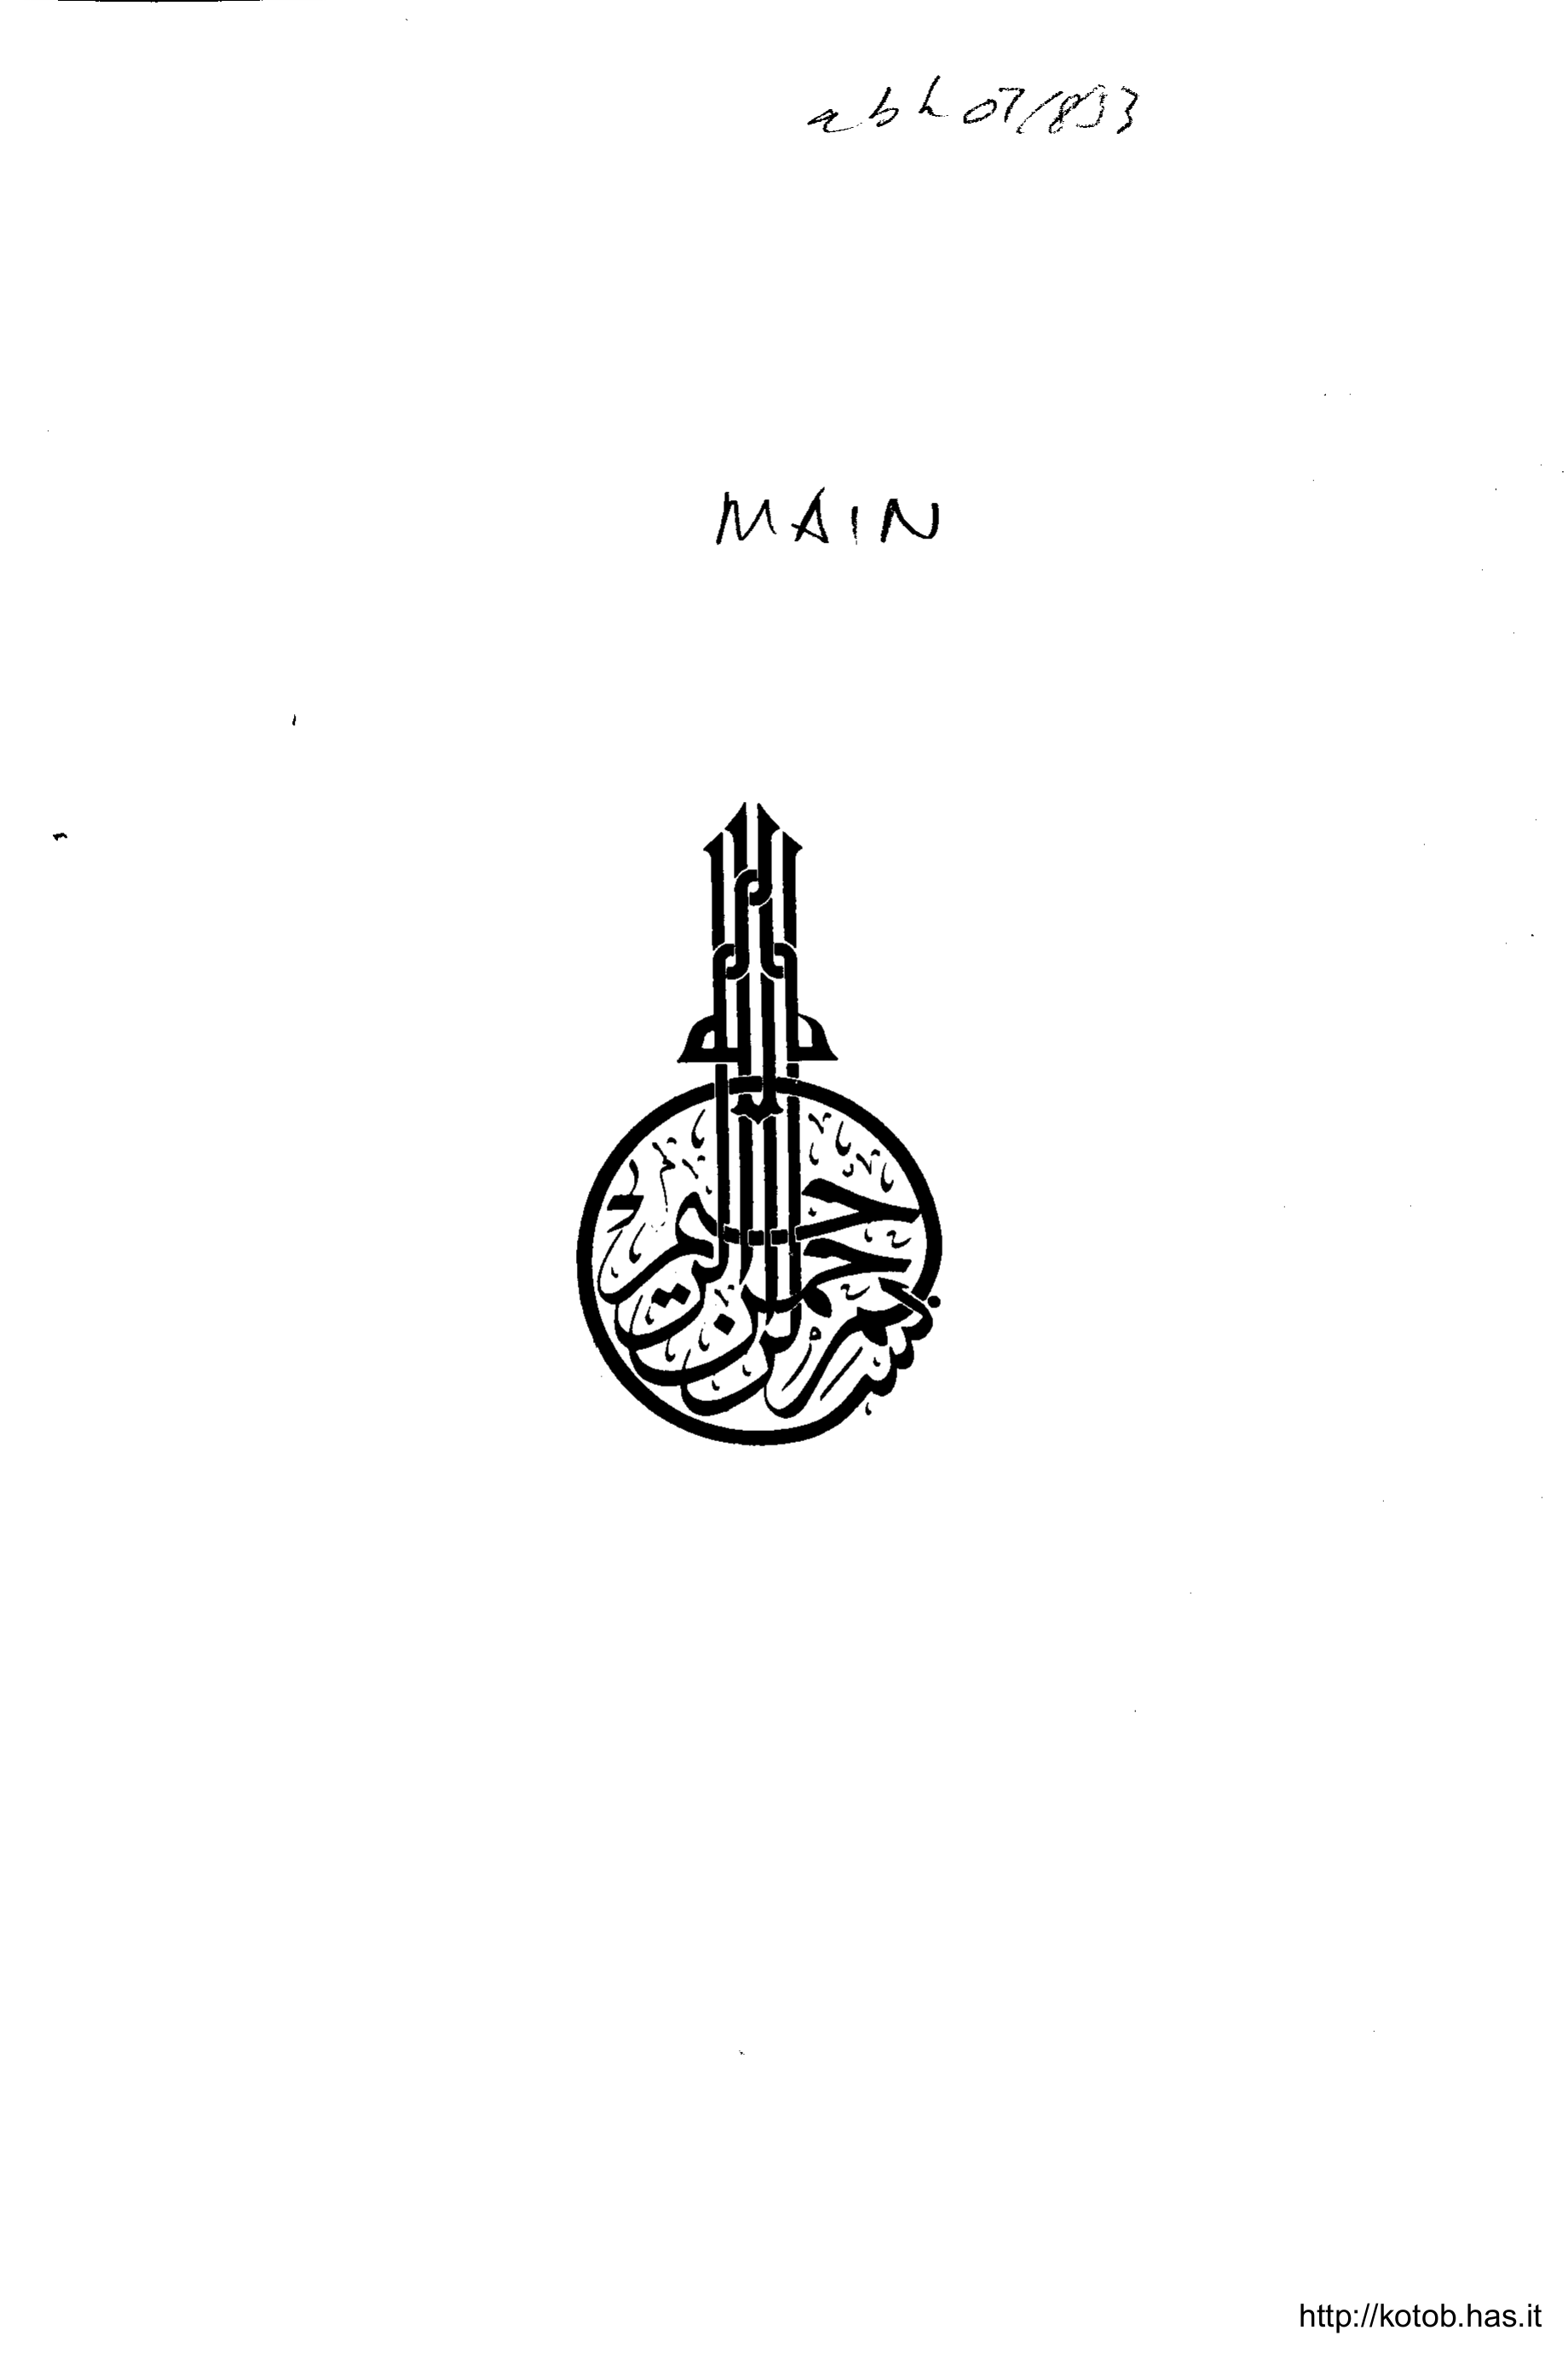 MAIN
بسم الله الرحمن الرحيم
http://kotob.has.it